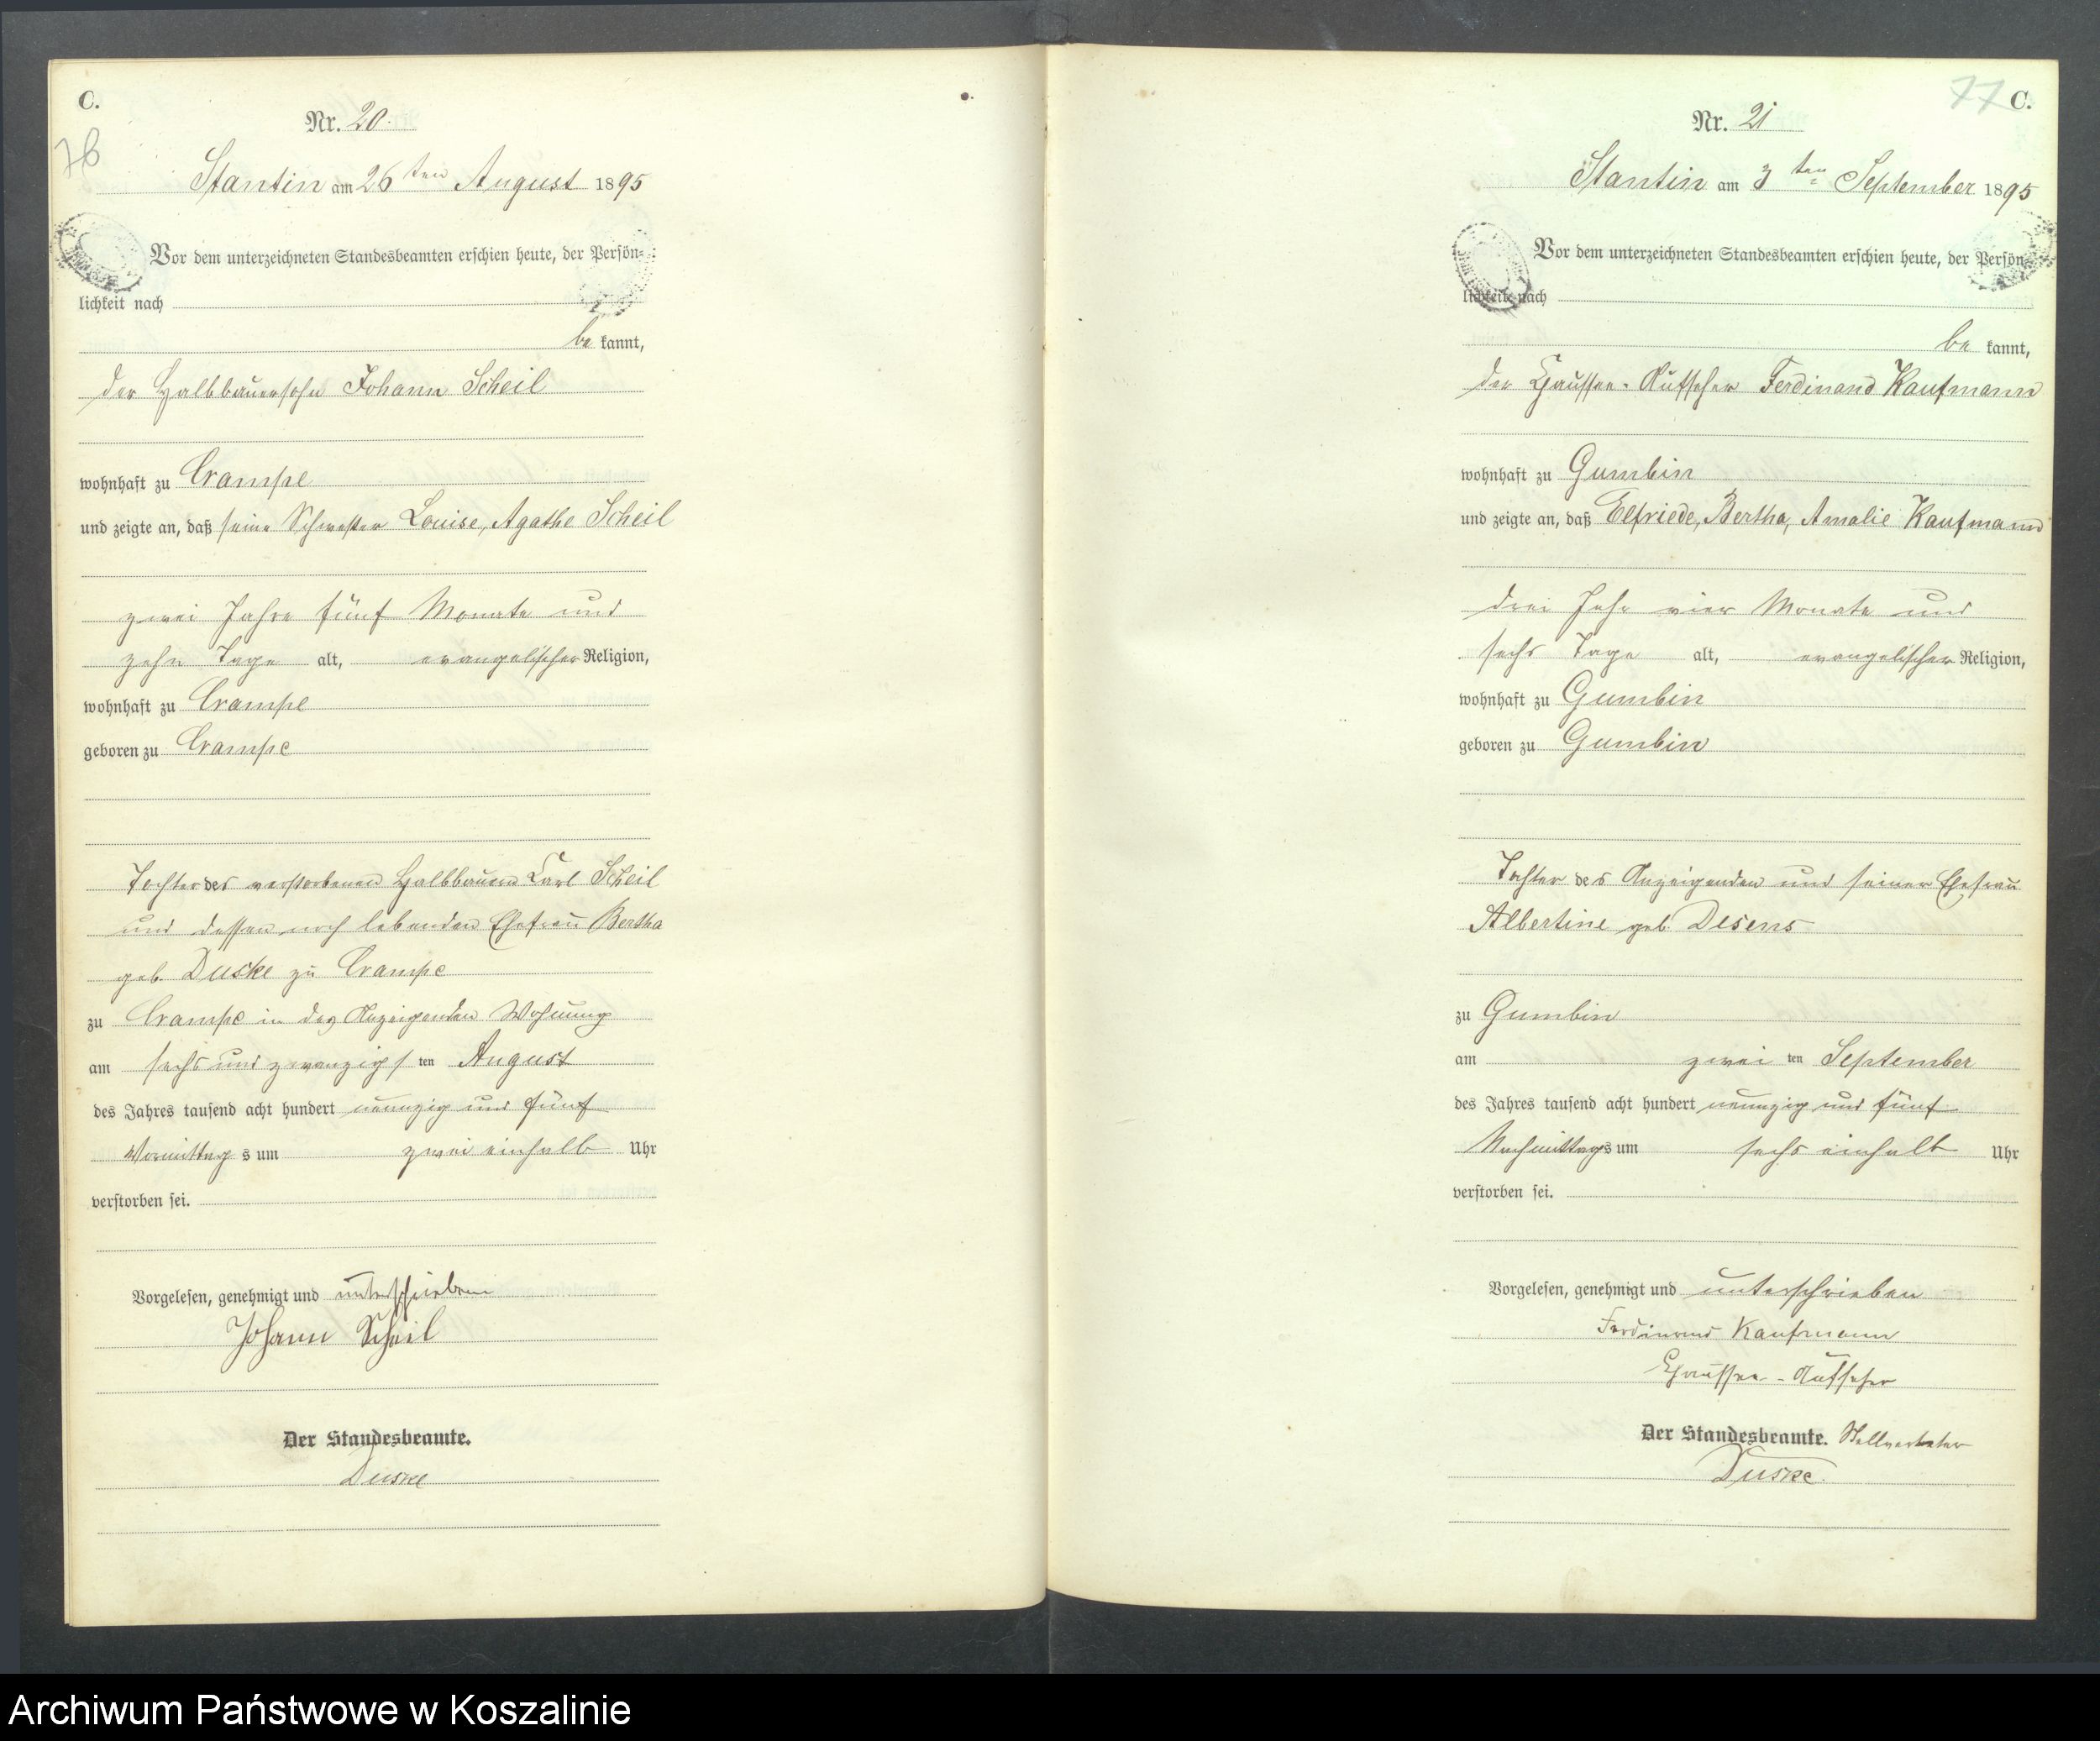 C.
76
Nr. 20.
Stantin am 26 ten August 1895
Vor dem unterzeichneten Standesbeamten erschien heute, der Persön-
lichkeit nach
be kannt,
der Halbbauersohn Johann Scheil
wohnhaft zu Crampe
und zeigte an, daß seine Schwester Louise, Agathe Scheil
zwei Jahre fünf Monate und
zehn Tage alt, evangelischer Religion,
wohnhaft zu Crampe
geboren zu Crampe
Tochter des verstorbenen Halbbauern Carl Scheil
und dessen noch lebenden Ehefrau Bertha
geb. Duske zu Crampe
zu Crampe in des Anzeigenden Wohnung
am sechs und zwanzigs ten August
des Jahres tausend acht hundert neunzig und fünf
Vormittag s um zwei einhalb Uhr
verstorben sei.
Vorgelesen, genehmigt und unterschrieben
Johann Scheil
Der Standesbeamte.
Duske
77 C.
Nr. 21
Stantin am 3 ten September 1895
Vor dem unterzeichneten Standesbeamten erschien heute, der Persön-
lichkeit nach
be kannt,
der Chaussee-Aufseher Ferdinand Kaufmann
wohnhaft zu Gumbin
und zeigte an, daß Elfriede, Bertha, Amalie Kaufmann
drei Jahr vier Monate und
sechs Tage alt, evangelischer Religion,
wohnhaft zu Gumbin
geboren zu Gumbin
Tochter des Anzeigenden und seiner Ehefrau
Albertine geb. Desens
zu Gumbin
am zwei ten September
des Jahres tausend acht hundert neunzig und fünf
Nachmittags um sechs einhalb Uhr
verstorben sei.
Vorgelesen, genehmigt und unterschrieben
Ferdinand Kaufmann
Chaussee-Aufseher
Der Standesbeamte. Stellvertreter
Duske.
Archiwum Państwowe w Koszalinie